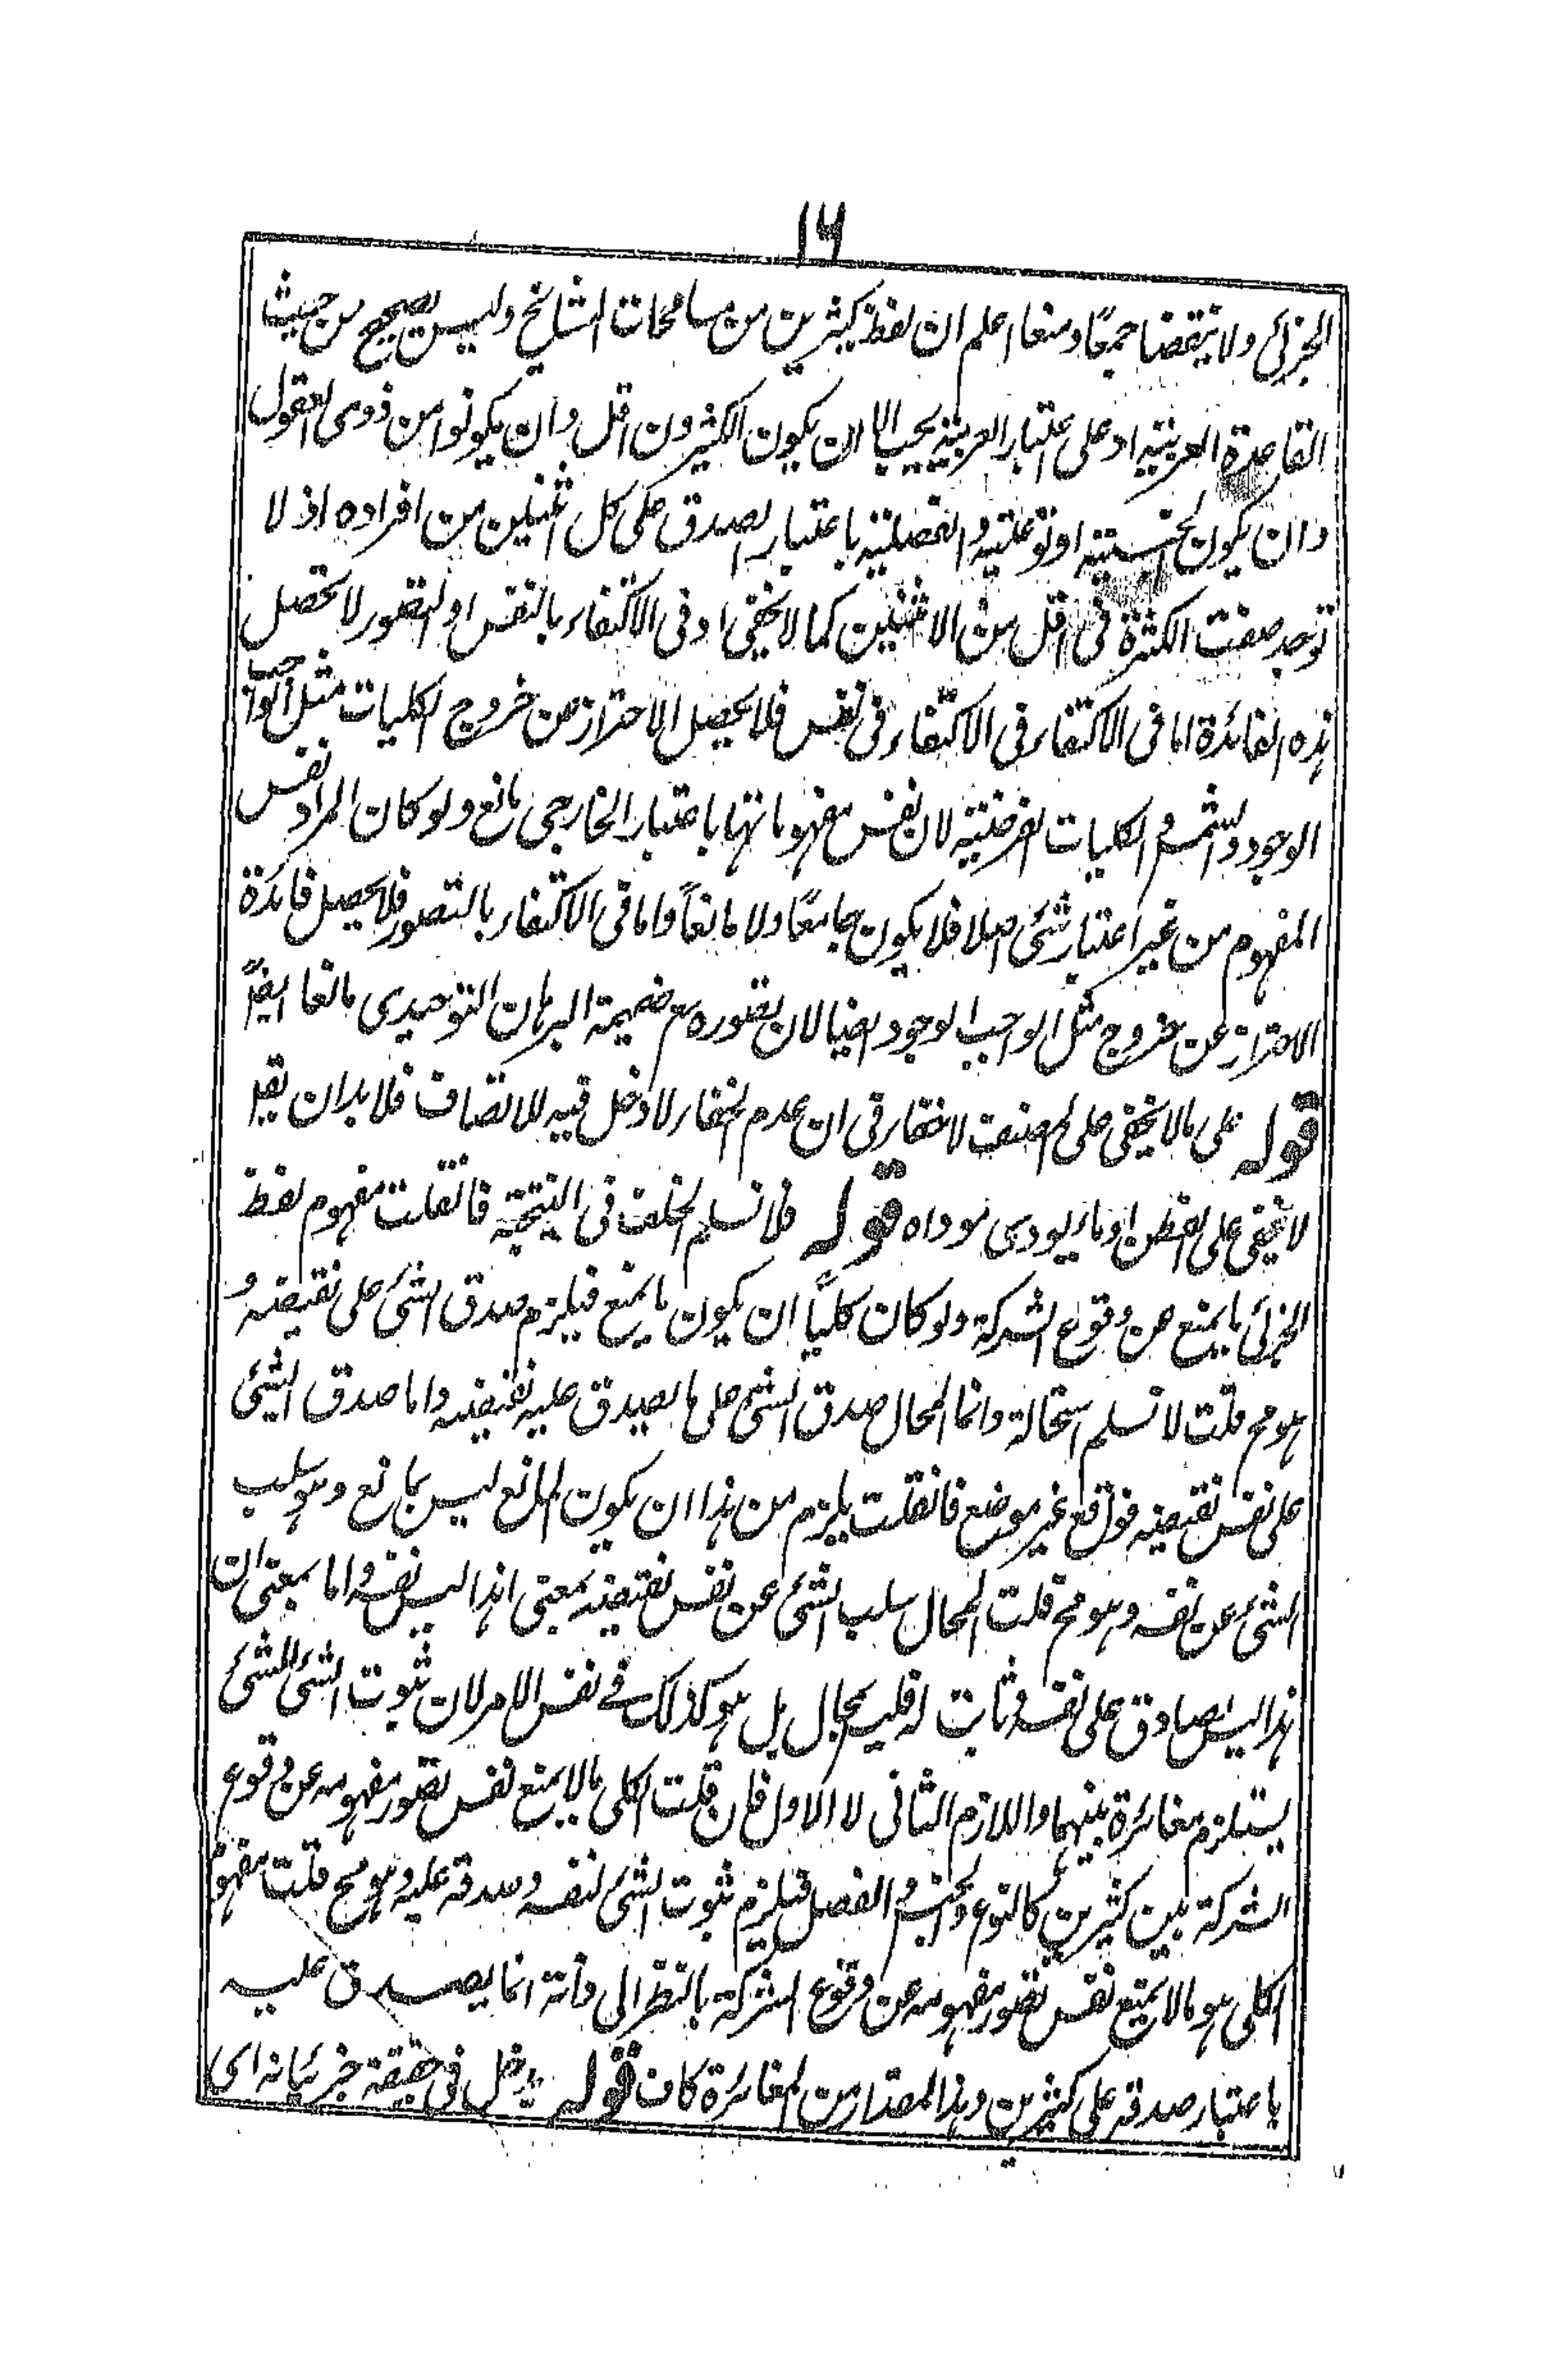 ۱۶
الجزئی ولا ینتقضا جمعًا ومنعا اعلم ان لفظ کثیرین من مسامحات المشایخ ولیس بصحیح من حیث
القاعدة العربیة اذ علی اعتبار العربیة یجب الا ان یکون الکثیرون اقل وان یکونوا من ذوی العقول
وان یکون الجنسیة او نوعیة والفصلیة باعتبار الصدق علی کل اثنین من افراده اذ لا
توجد صفت الکثرة فی اقل من الاثنین کما لا یخفی او فی الاکتفاء بالنفس او التصور لا تحصل
هذه الفائدة اما فی الاکتفاء فی الاکتفاء فی نفس فلا یحصل الاحتراز عن خروج الکلیات مثل الواجب
الوجود والشمس والکلیات الفرضیة لان نفس مفهوماتها باعتبار الخارجی مانع ولو کان المراد نفس
المفهوم من غیر اعتبار شئ اصلا فلا یکون جامعًا ولا مانعاً واما فی الاکتفاء بالتصور فلا یحصل فائدة
الاحتراز عن خروج مثل الواجب الوجود ایضا لان تصوره مع ضمیمة البرهان التوحیدی مانعا ایضًا
قوله علی ما لا یخفی علی المصنف لا خفاء فی ان عدم الخفاء لا دخل فیه للاتصاف فلا بد ان یقید
لا یخفی علی الفطن او ما یودی موداه قوله فلا نسلم الخلف فی النتیجة فانقلت مفهوم لفظ
الجزئی ما یمنع عن وقوع الشرکة ولو کان کلیاً ان یکون ما یمنع فیلزم صدق الشئ علی نقیضه و
هو مح قلت لا نسلم استحالة وانما المحال صدق الشئ علی ما یصدق علیه نقیضه واما صدق الشئ
علی نفس نقیضه فواقع غیر موضع فانقلت یلزم من هذا ان یکون المانع لیس بمانع وهو سلب
الشئ عن نفسه وهو مح قلت المحال سلب الشئ عن نفس نقیضه بمعنی ان هذا لیس نفسه واما بمعنی ان
هذا لیس صادق علی نفسه وثابت له فلیس بمحال بل هو کذلک فی نفس الامر لان ثبوت الشئ للشئ
یستلزم مغائرة بینهما واللازم الثانی لا الاول فان قلت الکلی ما لا یمنع نفس تصور مفهومه عن وقوع
الشرکة بین کثیرین کالنوع والجنس والفصل فیلزم ثبوت الشئ لنفسه وصدقه علیه وهو مح قلت مفهوم
الکلی هو ما لا یمنع نفس تصور مفهومه عن وقوع الشرکة بالنظر الی ذاته انما یصدق علیه
باعتبار صدقه علی کثیرین وهذا المقدار من المغائرة کاف قوله یدخل فی حقیقة جزئیاته ای